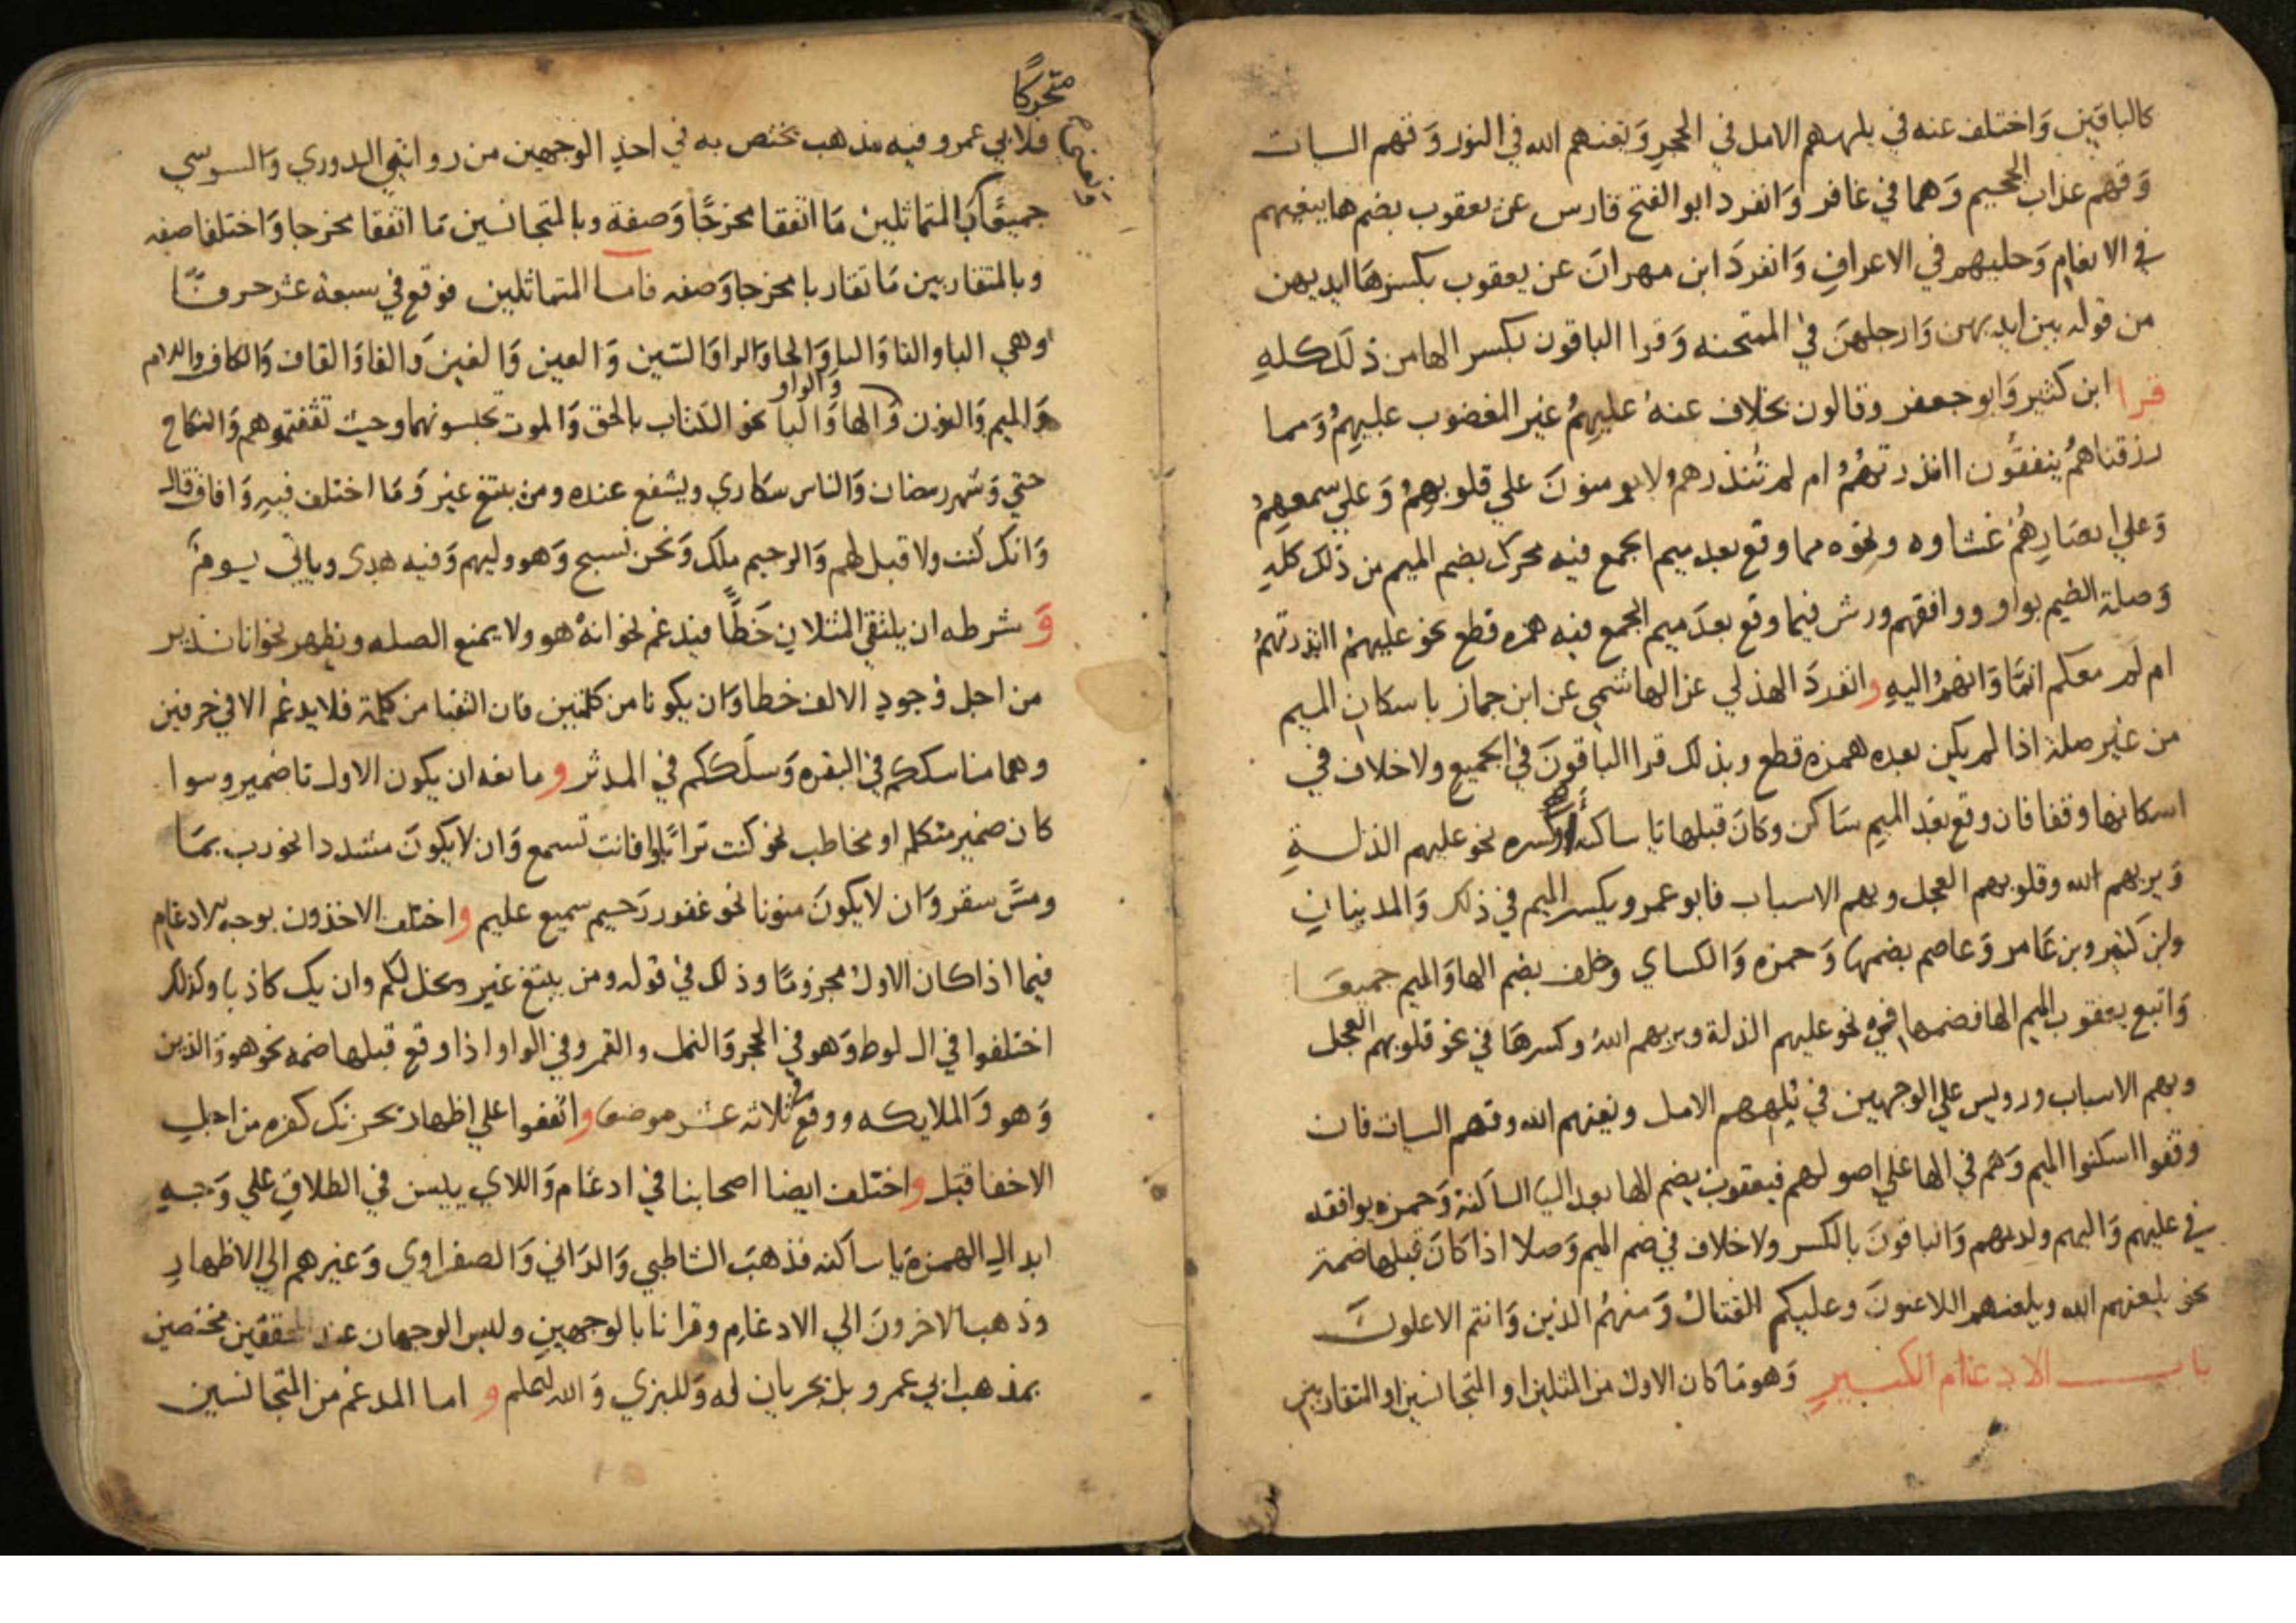 كالباقين وَاختلف عنه في يلههم الامل في الحجرِ وَيغنهم الله في النور وَقهم السيات
وَقهم عذاب الجحيم وَهما في غافر وَانفرد ابو الفتح فارس عن يعقوب بضم ها ببغيهم
في الانعامِ وَحليهم في الاعرافِ وَانفردَ ابن مهرانَ عن يعقوب بكسرهَا ايديهن
من قوله بين ايديهن وَارجلهنَ في الممتحنه وَقرا الباقون بكسر الها من ذلَك كلهِ
قرا ابن كثير وَابو جعفر وقالون بخلاف عنهُ عليهمُ غير المغضوب عليهمُ وَمما
رزقناهمُ ينفقُون اانذرتهُمُ ام لم تُنذرهمُ لا يومنونَ علي قلوبهمُ وَعلي سمعهِمُ
وَعلي ابصَارِهُمُ غشاوه ونحوه مما وقع بعد ميم الجمع فيه محرك بضم الميم من ذلك كلهِ
وَصلة الضيم بواو ووافقهم ورش فيما وقع بعدَ ميم الجمع فيه همزه قطع نحو عليهمُ اانذرتهمُ
ام لَم معكم انمَّا وَانهمُ اليهِ وانفردَ الهذلي عن الهاشمي عن ابن جماز باسكان الميم
من غير صلة اذا لم يكن بعده همزه قطع وبذلك قرا الباقونَ في الجميعِ ولا خلاف في
اسكانها وقفا فان وقع بعَد الميم سَاكن وكانَ قبلها يا ساكنه او كسره نحو عليهم الذلةِ
وَيريهم الله وقلوبهم العجل وبهم الاسباب فابو عمرو يكسر الميم في ذلك وَالمدنيانِ
وابن كثير وبن عَامر وَعاصم بضمها وَحمزه وَالكساي وخلف بضم الها وَالميم جميعَا
وَاتبع يعقوب الميم الها فضمها في نحو عليهم الذلة ويريهم اللهُ وكسرهَا في نحو قلوبهم العجل
وبهم الاسباب ورويس علي الوجهين في يُلههم الامل ويغنهم الله وقهم السيات فان
وقفوا اسكنوا الميم وَهم في الها علي اصولهم فيعقوب بضم الها بعد اليا الساكنة وَحمزه يوافقه
في عليهم وَاليهم ولديهم وَالباقونَ بالكسر ولا خلاف في ضم الميم وَصلا اذا كانَ قبلها ضمة
نحو يلعنهم الله ويلعنهم اللاعنونَ وعليكم القتالُ وَمنهمُ الذين وَانتم الاعلونَ
باب الادغام الكبيرِ وَهو مَا كان الاول من المثلين او المتجانسين او المتقاربين
متحركًا
فلابي عمرو فيه مذهب يختص به في احد الوجهين من روايتي الدوري وَالسوسي
جميعًا وَالمتماثلين مَا اتفقا مخرجًا وَصفة وبالمتجانسين مَا اتفقا مخرجا وَاختلفا صفه
وبالمتقاربين مَا تقاربا مخرجا وَصفه فاما المتماثلين فوقع في سبعة عشر حرفًا
وهي الباو التا وَالثا وَالحا وَالرا وَالسّين وَالعين وَالغين وَالفا وَالقاف وَالكاف واللام
وَالميم وَالنون وَالواو وَالها وَاليا نحو الكتاب بالحق وَالموت تحبسونهما وحيث ثقفتموهم وَالنكاح
حتي وَشهر رمضان وَالناس سكاري ويشفع عنده ومن يبتغ غير وَمَا اختلف فيهِ وَافاق قال
وَانك كُنت ولا قبل لهم وَالرحيم ملك وَنحن نسبح وَهو وليهم وَفيه هدى وياتي يومٌ
وَشرطه ان يلتقي المثلان خَطًّا فيدغم نحو انهُ هو ولا يمنع الصله ويظهر نحو انا نذير
من اجل وجودِ الالف خطا وَان يكونا من كلمتين فان التقيا من كلمة فلا يدغم الا في حرفين
وهما مناسككم في البقره وَسلَككم في المدثر ومانعه ان يكون الاول تا ضمير وسوا
كان ضمير متكلم او مخاطب نحو كنت ترابًا افانت تسمع وَان لا يكونَ مشددا نحو رب بمَا
ومسَّ سقر وَان لا يكونَ منونا نحو غفور رَحيم سميع عليم واختلف الاخذون بوجه الادغام
فيما اذا كان الاولُ مجزومًا وذلك في قوله ومن يبتغ غير ويخل لكم وان يك كاذبا وكذلك
اختلفوا في ال لوط وَهو في الحجر وَالنمل والقمر وفي الواو اذا وقع قبلها ضمه نحو هو وَالذين
وَهو وَالملايكه ووقع في ثلاثه عشر موضعا واتفقوا علي اظهار يحزنك كفره من اجلِ
الاخفا قبَل واختلف ايضا اصحابنا في ادغام وَاللاي ييسن في الطلاقِ علي وَجهِ
ابدال الهمزة يَا ساكنه فذهبَ الشاطبي وَالدَاني وَالصفراوي وَغيرهم الي الاظهارِ
وذهب الاخرونَ الي الادغامِ وقرانا بالوجهينِ وليس الوجهان عند المحققين مختصين
بمذهب ابي عمرو بل يجريان له وَللبزي وَالله اعلم و اما المدغم من المتجانسين